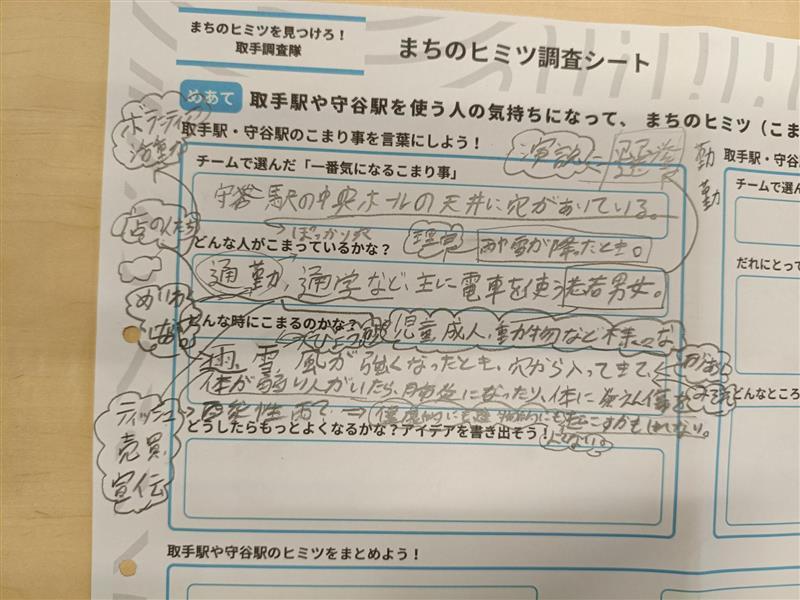 まちのヒミツを見つけろ!
取手調査隊
まちのヒミツ調査シート
めあて 取手駅や守谷駅を使う人の気持ちになって、 まちのヒミツ(こま
ボランティア
活動
取手駅・守谷駅のこまり事を言葉にしよう!
演説に
勤
勤
取手駅・守谷
チームで選んだ「一番気になるこまり事」
チームで選
守谷駅の中央ホールの天井に穴があいている。
ぽっかり穴
店の人たち
どんな人がこまっているかな?
理由
雨雪が降ったとき。
だれにとって
通勤、通学など、主に電車を使う老若男女。
めいわく
どんな時にこまるのかな?
児童、成人、動物など様々な
雨、雪、風が強くなったとき、穴から入ってきて、
体が弱い人がいたら、肺炎になったり、体に
どんなところ
ティッシュ
売買
宣伝
どうしたらもっとよくなるかな?アイデアを書き出そう!
よくない。
取手駅や守谷駅のヒミツをまとめよう!